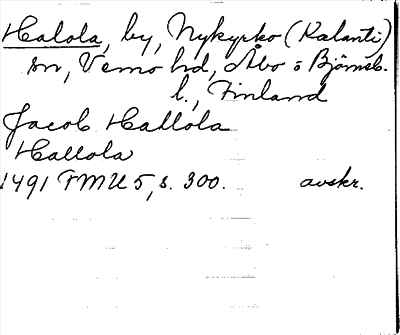 Halola, by, Nykyrko (Kalanti)
sn, Vemo hd, Åbo o Björneb.
l., Finland
Jacob Hallola
Hallola
1491 FMU 5, s. 300. avskr.